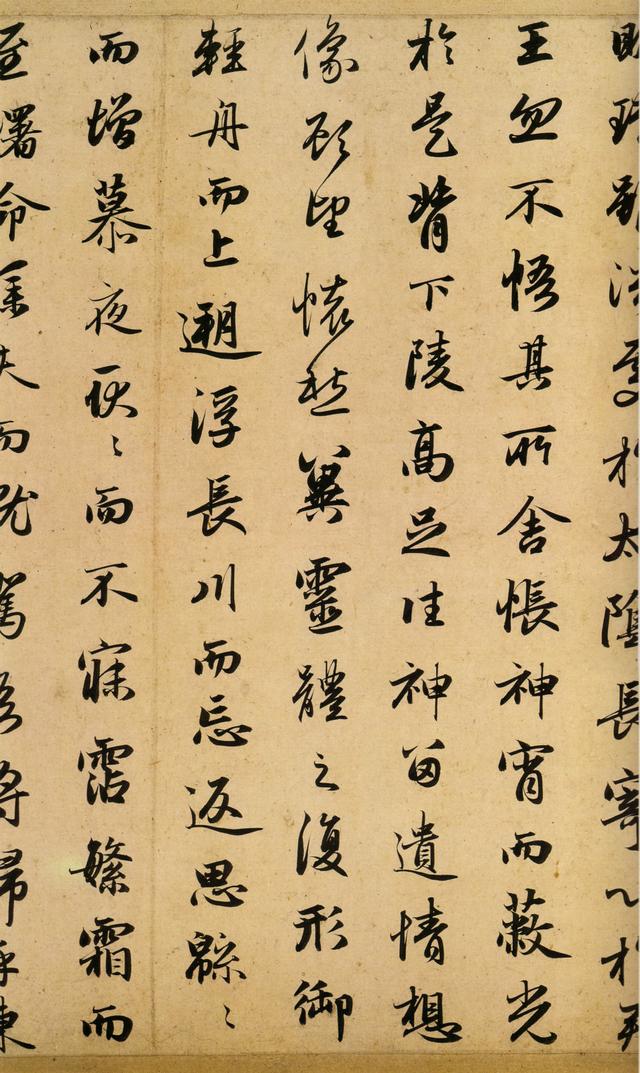 於太陰長寄心於
王忽不悟其所舍悵神宵而蔽光
於是背下陵高足往神留遺情想
像顧望懷愁冀靈體之復形御
輕舟而上遡浮長川而忘返思緜〻
而增慕夜耿〻而不寐霑繁霜而
至曙命僕夫而就駕吾將歸乎東